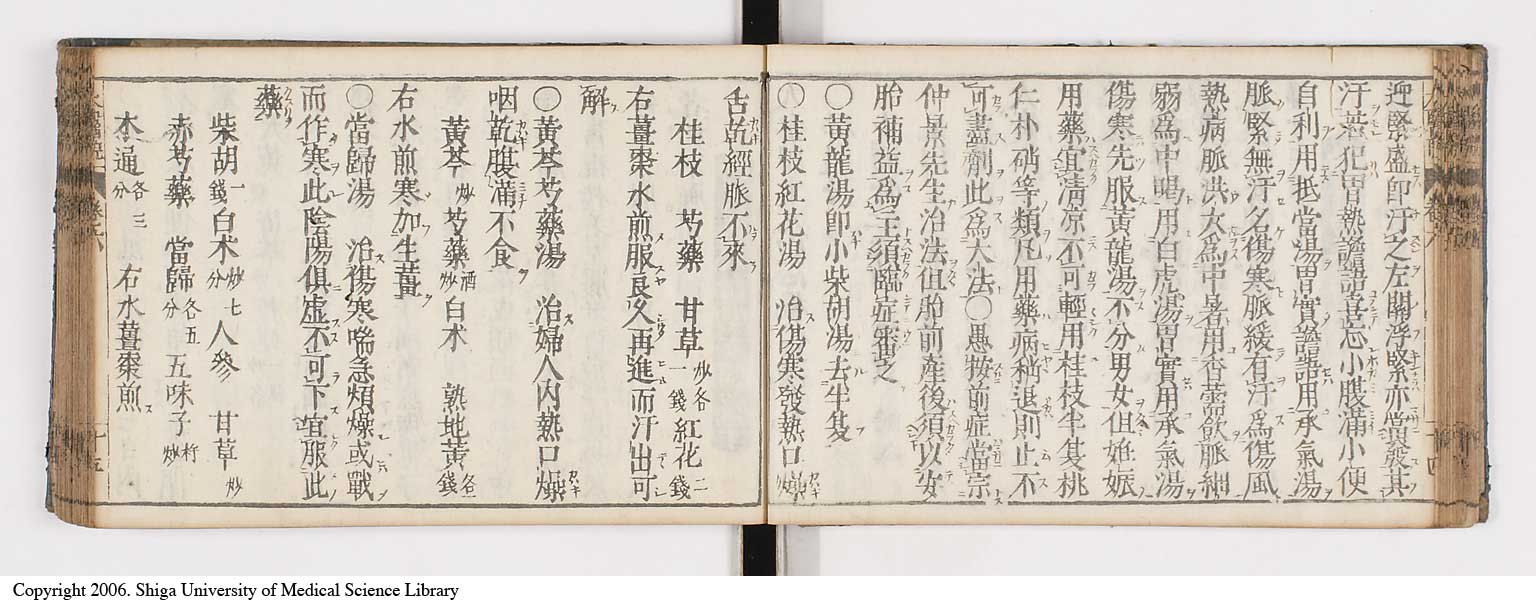 迎緊盛卽汗之左關浮緊亦當發其
汗若犯胃熱譫語喜忘小腹滿小便
自利用抵當湯胃實譫語用承氣湯
脈緊無汗名傷寒脈緩有汗爲傷風
熱病脈洪大爲中暑用香薷飮脈細
弱爲中暍用白虎湯胃實用承氣湯
傷寒先服黃龍湯不分男女但姙娠
用藥宜淸凉不可輕用桂枝半夏桃
仁朴硝等類凡用藥病稍退則止不
可盡劑此爲大法〇愚按前症當宗
仲景先生治法但胎前產後須以安
胎補益爲主須臨症審之
〇黃龍湯卽小柴胡湯去半夏
〇桂枝紅花湯 治傷寒發熱口燥
舌乾經脈不來
桂枝 芍藥 甘草炒各一錢 紅花二錢
右薑棗水煎服良久再進而汗出可
解
〇黃芩芍藥湯 治婦人內熱口燥
咽乾腹滿不食
黃芩炒 芍藥酒炒 白朮 熟地黃各錢
右水煎寒加生薑
〇當歸湯 治傷寒喘急煩燥或戰
而作寒此陰陽俱虛不可下宜服此
藥
柴胡一錢 白朮炒七分 人參 甘草炒
赤芍藥 當歸各五分 五味子杵炒
木通各三分 右水薑棗煎
Copyright 2006. Shiga University of Medical Science Library